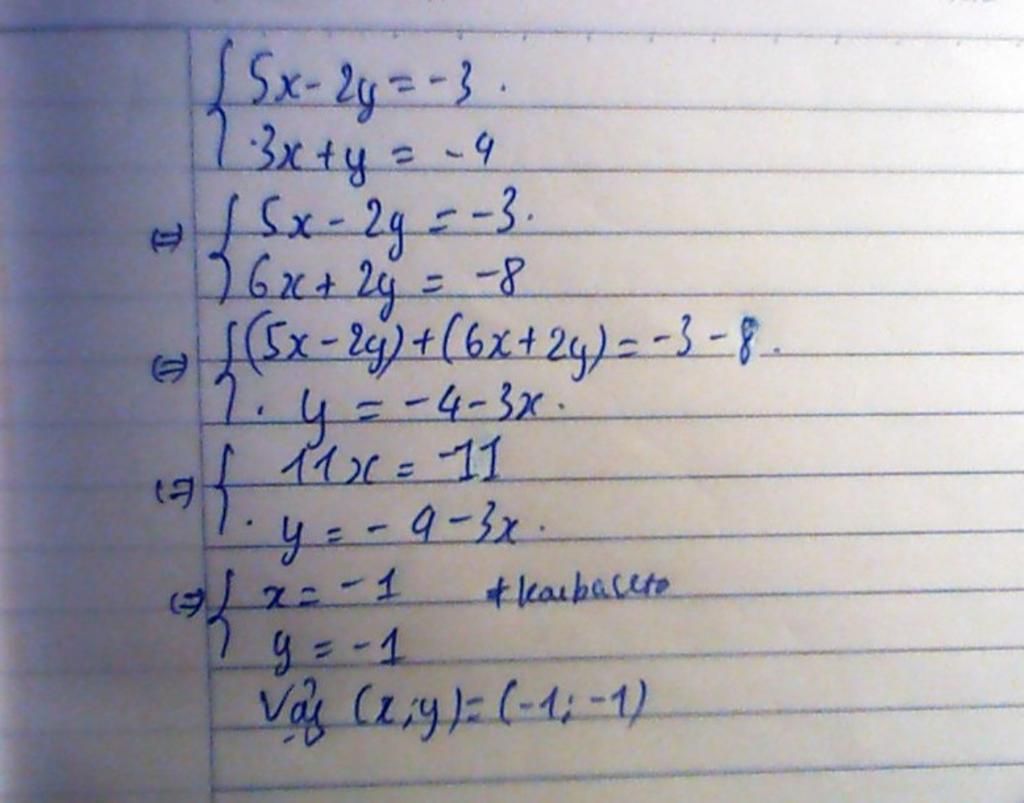 5x - 2y = -3.
3x + y = -4
⇔ 5x - 2y = -3.
6x + 2y = -8
⇔ (5x - 2y) + (6x + 2y) = -3 - 8.
y = -4 - 3x.
⇔ 11x = -11
y = -4 - 3x.
⇔ x = -1
y = -1
Vậy (x; y) = (-1; -1)